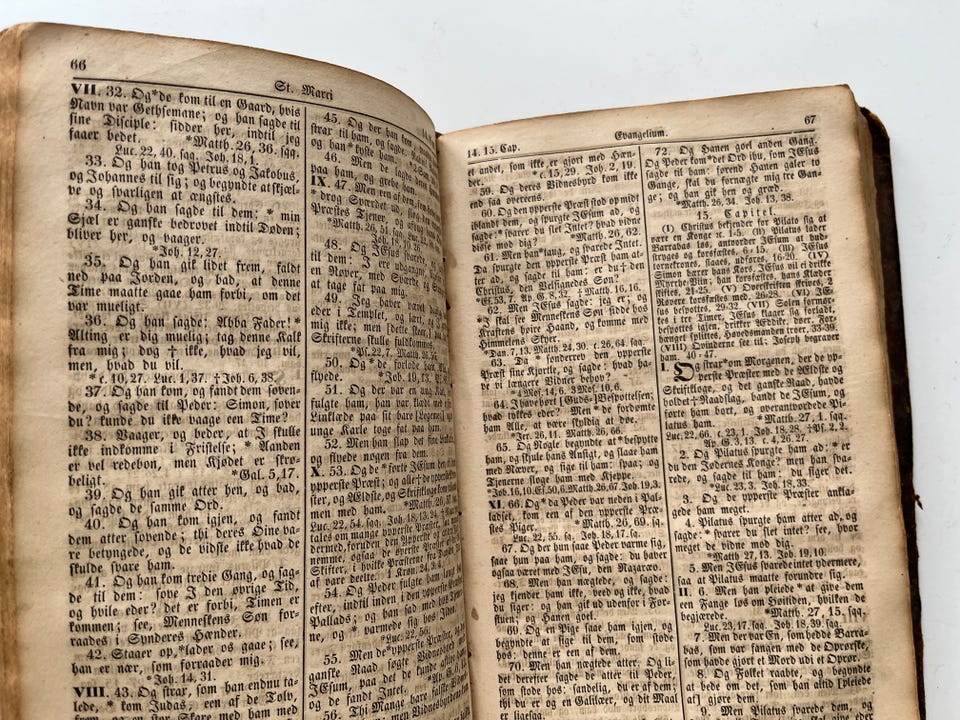 66
St. Marci
VII. 32. Og *de kom til en Gaard, hvis
Navn var Gethsemane; og han sagde til
sine Disciple: sidder her, indtil jeg
faaer bedet. *Matth. 26, 36. sqq.
Luc. 22, 40. sqq. Joh. 18, 1.
33. Og han tog Petrus og Jakobus,
og Johannes til sig; og begyndte at skjæl-
ve og svarligen at ængstes.
34. Og han sagde til dem: * min
Sjæl er ganske bedrøvet indtil Døden;
bliver her, og vaager.
*Joh. 12, 27.
35. Og han gik lidet frem, faldt
ned paa Jorden, og bad, at denne
Time maatte gaae ham forbi, om det
var mueligt.
36. Og han sagde: Abba Fader! *
Alting er dig muelig; tag denne Kalk
fra mig; dog † ikke, hvad jeg vil,
men, hvad du vil.
*c. 10, 27. Luc. 1, 37. †Joh. 6, 38.
37. Og han kom, og fandt dem soven-
de, og sagde til Peder: Simon, sover
du? kunde du ikke vaage een Time?
38. Vaager, og beder, at I skulle
ikke indkomme i Fristelse; * Aanden
er vel redebon, men Kjødet er skrø-
beligt. *Gal. 5, 17.
39. Og han gik atter hen, og bad,
og sagde de samme Ord.
40. Og han kom igjen, og fandt
dem atter sovende; thi deres Øine va-
re betyngede, og de vidste ikke hvad de
skulde svare ham.
41. Og han kom tredie Gang, og sag-
de til dem: sove I den øvrige Tid,
og hvile eder? det er forbi, Timen er
kommen; see, Menneskens Søn for-
raades i Synderes Hænder.
42. Staaer op, *lader os gaae; see,
han er nær, som forraader mig.
*Joh. 14, 31.
VIII. 43. Og strax, som han endnu ta-
lede, * kom Judas, een af de Tolv,
45. Og der han kom
strax til ham, og sagde:
og han *kyste ham.
46. Men de lagde
paa ham, og grebe ham.
IX. 47. Men een af dem,
* drog Sværdet ud,
Præstes Tjener,
*Matth. 26, 51.
Joh. 18, 10.
48. Og JEsus svarede,
til dem: I ere udgangne,
en Røver, med Sværde og
at tage fat paa mig.
49. Jeg haver været
eder i Templet, og lært,
mig ikke; men
Skrifterne skulle fuldkommes.
*Ps. 22, 7. Matth. 26,
50. Og *de forlode ham
flyede. *Joh. 19, 13.
51. Og der var en ung
fulgte ham, som var klædt med
Linklæde paa sit bare [Legeme;] og
unge Karle toge fat paa ham.
52. Men han slap det fine Linklæde,
og flyede nøgen fra dem.
X. 53. Og de * førte JEsum
ypperste Præst; og alle
og Ældste, og Skriftkloge
men med ham. *Matth. 26, 57.
Luc. 22, 54. sqq. Joh. 18, 13.
54. Og Peder fulgte ham langt
efter, indtil ind i den ypperste
Pallads; og han sad med
ne, og * varmede sig
*Luc. 22, 56.
55. Men de *ypperste Præster
Raad søgte Vidnesbyrd
JEsum, paa det de
og fandt Intet.
56. Thi Mange bare falskt
14. 15. Cap.
Evangelium.
67
et andet, som ikke er gjort med Hæn-
der. *c. 15, 29. Joh. 2, 19.
59. Og deres Vidnesbyrd kom ikke
end saa overeens.
60. Og den ypperste Præst stod op midt
iblandt dem, og spurgte JEsum ad, og
sagde: * svarer du slet Intet? hvad vidne
disse mod dig? *Matth. 26, 62.
61. Men han *taug, og svarede Intet.
Da spurgte den ypperste Præst ham at-
ter ad, og sagde til ham: er du † den
Christus, den Velsignedes Søn?
*Es. 53, 7. Ap. G. 8, 32. † Matth. 16, 16.
62. Men JEsus sagde: jeg er; og
* I skal see Menneskens Søn sidde hos
Kraftens høire Haand, og komme med
Himmelens Skyer.
*Dan. 7, 13. Matth. 24, 30. c. 26, 64. sqq.
63. Da sønderrev den ypperste
Præst sine Kjortle, og sagde: hvad ha-
ve vi længere Vidner behov?
*4 Mos. 14, 6. 3 Mos. 10, 6.
64. I have hørt [Guds-] Bespottelsen;
hvad tykkes eder? Men *de fordømte
ham Alle, at være skyldig at døe.
*Jer. 26, 11. Matth. 26, 66.
65. Og Nogle begyndte at *bespytte
ham, og skjule hans Ansigt, og slaae ham
med Næver, og sige til ham: spaa; og
Tjenerne sloge ham med Kjeppe.
*Job. 16, 10. Es. 50, 6. Matth. 26, 67. Joh. 19, 3.
XI. 66. Og *da Peder var neden i Pa-
ladset, kom een af den ypperste Præ-
stes Piger. *Matth. 26, 69. sq.
Luc. 22, 55. sq. Joh. 18, 17. sq.
67. Og der hun saae Peder varme sig,
saae hun paa ham, og sagde: du haver
ogsaa været med JEsu, den Nazaræo.
68. Men han nægtede, og sagde:
jeg kjender ham ikke, veed og ikke, hvad
du siger; og han gik ud udenfor i For-
stuen; og Hanen goel.
69. Og en Pige saae ham igjen, og
begyndte at sige til dem, som stode
hos: denne er een af dem.
70. Men han nægtede atter. Og li-
det derefter sagde atter til Peder,
som stode hos: sandelig, du er af dem;
thi du er og en Galilæer, og dit Maal
er ligesaa.
72. Og Hanen goel anden Gang.
Og Peder kom *det Ord ihu, som JEsus
sagde til ham: førend Hanen galer to
Gange, skal du fornægte mig tre Gan-
ge; og han gik hen og græd.
*Matth. 26, 34. Joh. 13, 38.
15. Capitel.
(I) Christus bekjender for Pilato sig at
være en Konge v. 1-5. (II) Pilatus vil have
Barrabas løs, antvorder JEsum at hud-
stryges og korsfæstes, 6-15. (III) JEsus
tornekrones, slaaes, udføres, 16-20. (IV)
Simon bærer hans Kors. JEsus vil ei drikke
Myrrhe-Viin; han korsfæstes, hans Klæder
skiftes, 21-25. (V) Overskriften skrives, 2
Røvere korsfæstes med. 26-28. (VI) JEsus
bespottes, 29-32. (VII) Solen formør-
kes i tre Timer, JEsus klager sig forladt,
bespottes igjen, drikker Æddike, døer. For-
hænget splittes, Høvedsmanden troer, 33-39.
(VIII) Qvinderne see til; Joseph begraver
ham, 40-47.
I. Og strax *om Morgenen, der de yp-
perste Præster med de Ældste og
Skriftkloge, og det ganske Raad, havde
holdet † Raadslag, bandt de JEsum, og
førte ham bort, og overantvordede Pi-
lato ham. *Matth. 27, 1. sqq.
Luc. 22, 66. c. 23, 1. Joh. 18, 28. †Ps. 2, 2.
Ap. G. 3, 13. c. 4, 26. 27.
2. Og Pilatus spurgte ham ad: * er
du den Jødernes Konge? men han sva-
rede, og sagde til ham: du siger det.
*Luc. 23, 3. Joh. 18, 33.
3. Og de ypperste Præster ankla-
gede ham meget.
4. Pilatus spurgte ham atter ad, og
sagde: * svarer du slet intet? see, hvor
meget de vidne mod dig.
*Matth. 27, 13. Joh. 19, 10.
5. Men JEsus svarede intet ydermere,
saa at Pilatus maatte forundre sig.
II. 6. Men han pleiede * at give dem
een Fange løs om Høitiden, hvilken de
begjærede. *Matth. 27, 15. sqq.
Luc. 23, 17. sqq. Joh. 18, 39. sqq.
7. Men der var En, som hedde Barra-
bas, som var fangen med de Oprørske,
som havde gjort et Mord udi et Oprør.
8. Og Folket raabte, og begyndte
at bede om det, som han altid [pleiede
af] gjøre dem.
9. Men Pilatus svarede dem, og